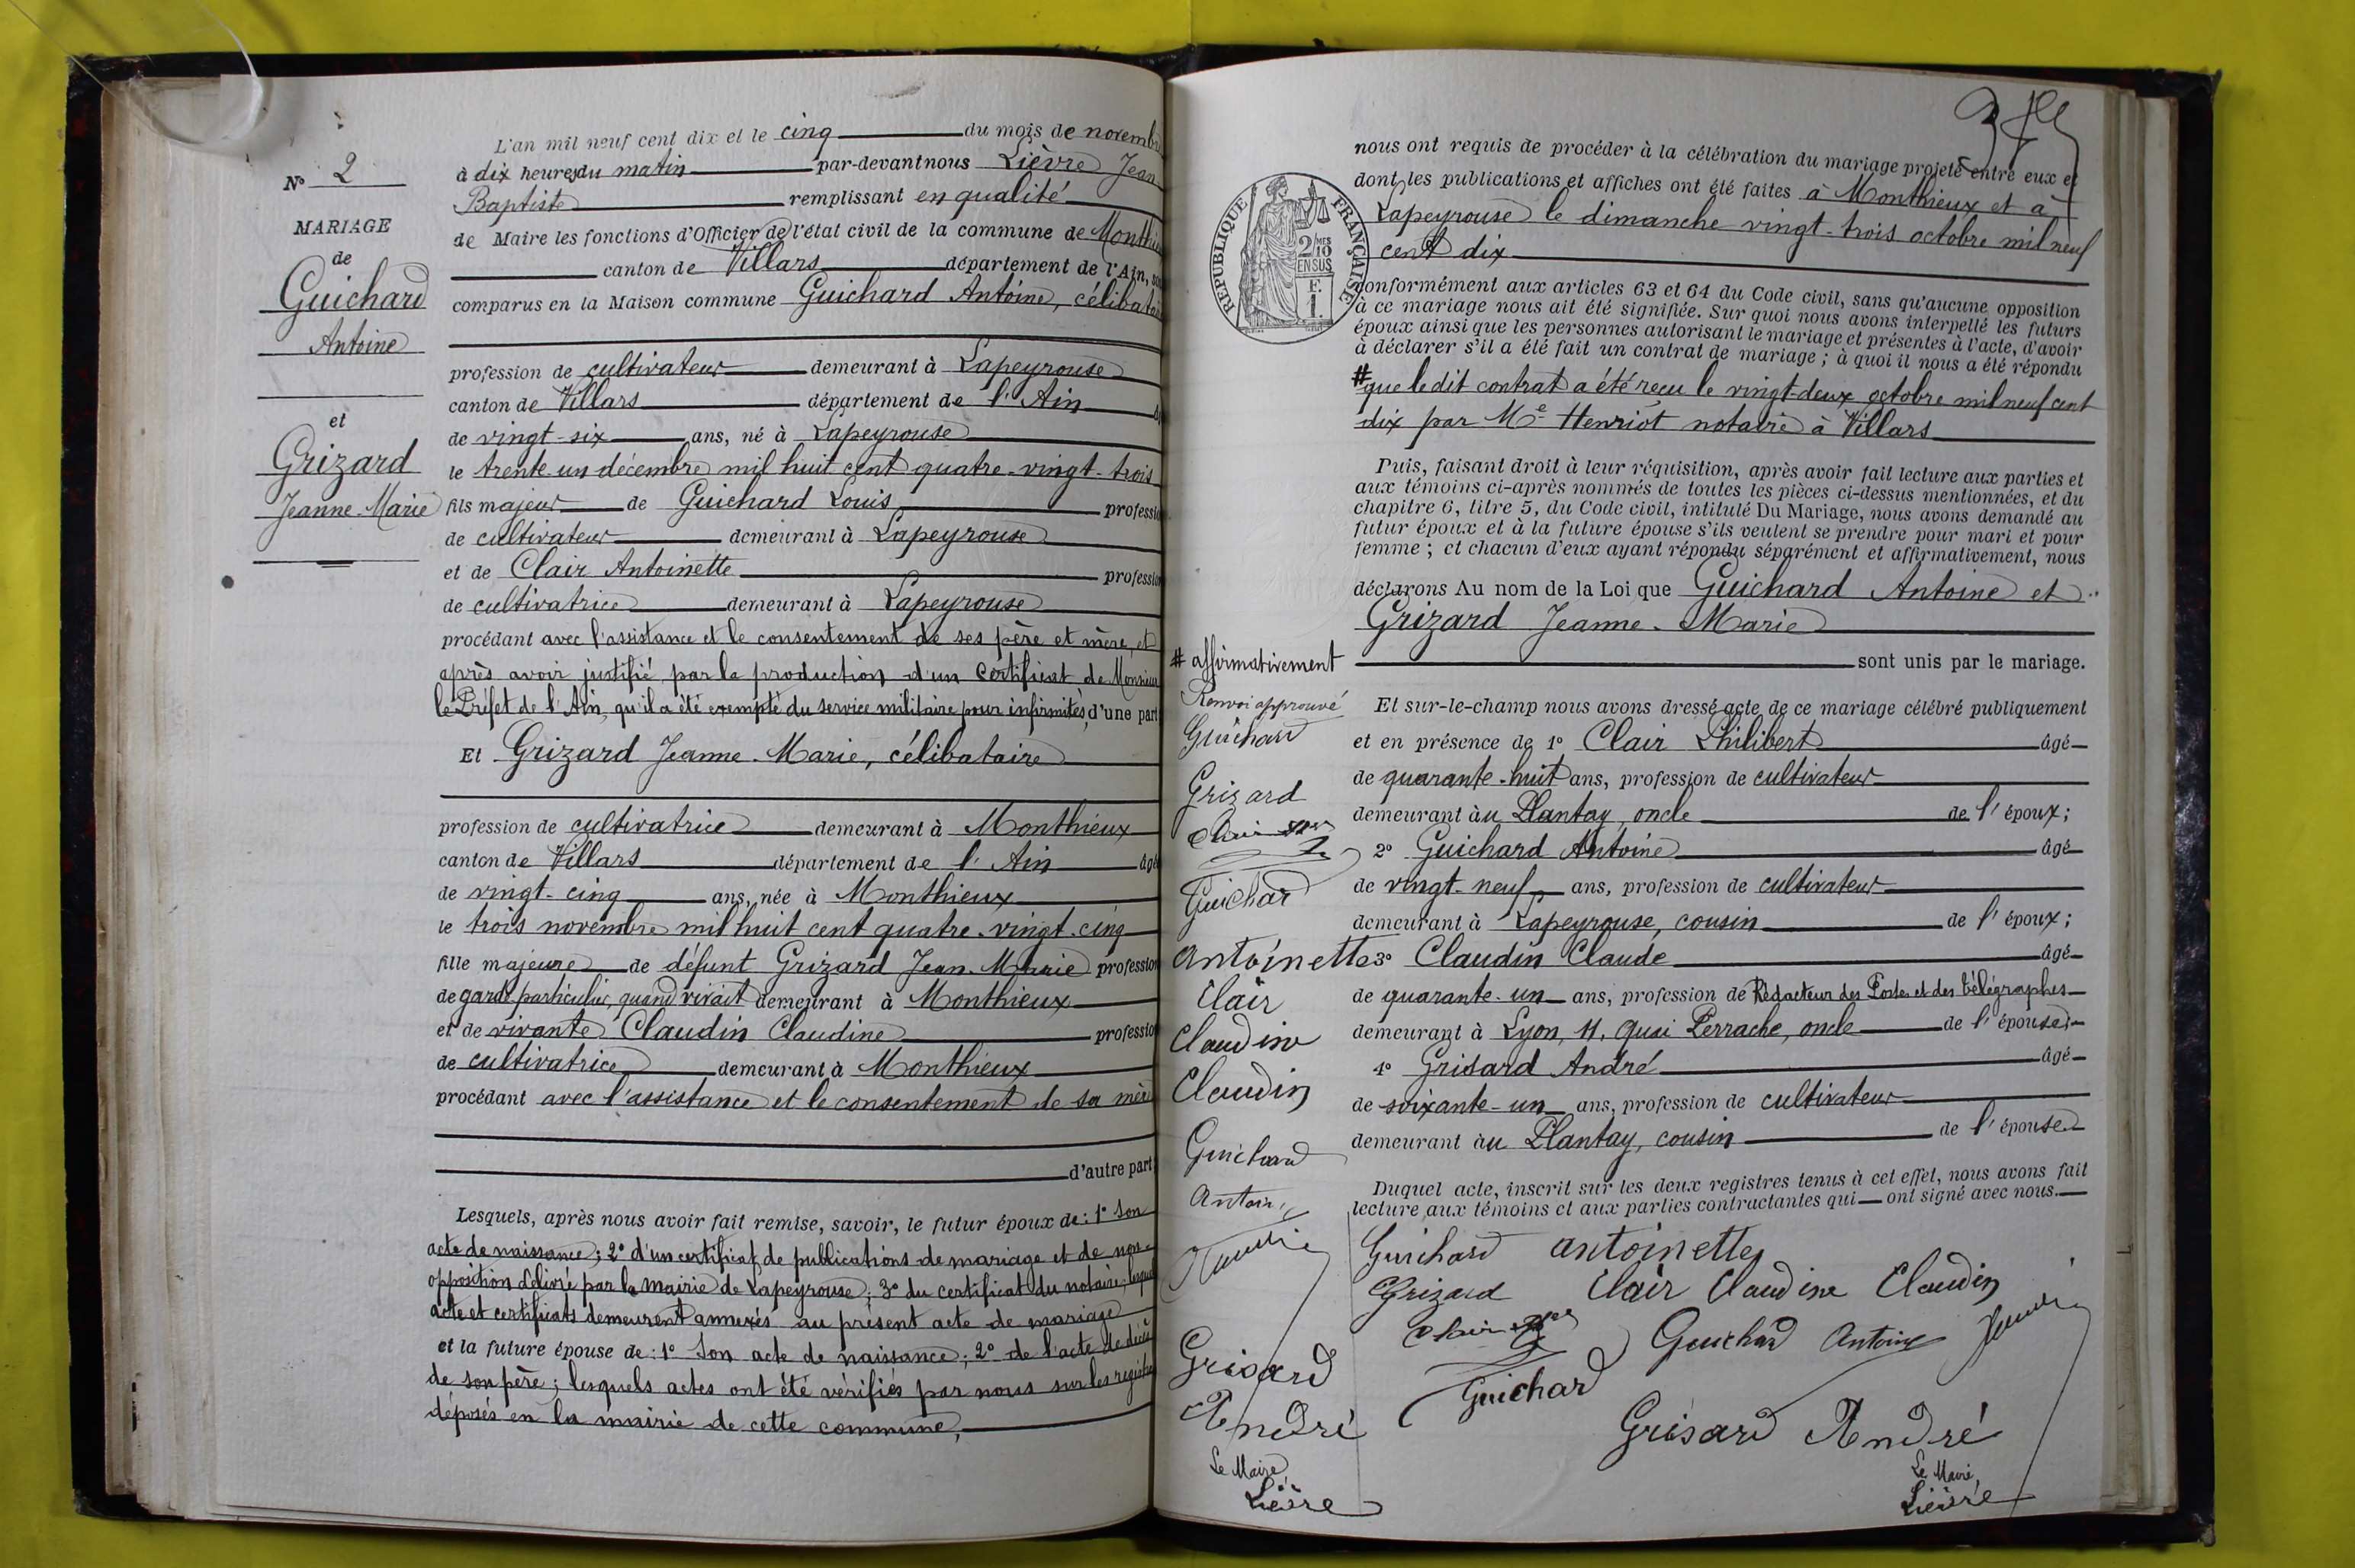 N° 2
MARIAGE
de
Guichard
Antoine
et
Grizard
Jeanne-Marie
L'an mil neuf cent dix et le cinq du mois de novembre
à dix heures du matin par-devant nous Lièvre Jean
Baptiste remplissant en qualité
de Maire les fonctions d'Officier de l'état civil de la commune de Monthieux
canton de Villars département de l'Ain, sont
comparus en la Maison commune Guichard Antoine, célibataire
profession de cultivateur demeurant à Lapeyrouse
canton de Villars département de l'Ain âgé
de vingt-six ans, né à Lapeyrouse
le trente-un décembre mil huit cent quatre-vingt-trois
fils majeur de Guichard Louis profession
de cultivateur demeurant à Lapeyrouse
et de Clair Antoinette profession
de cultivatrice demeurant à Lapeyrouse
procédant avec l'assistance et le consentement de ses père et mère, et
après avoir justifié par la production d'un certificat de Monsieur
le Préfet de l'Ain, qu'il a été exempté du service militaire pour infirmités, d'une part
Et Grizard Jeanne-Marie, célibataire
profession de cultivatrice demeurant à Monthieux
canton de Villars département de l'Ain âgé
de vingt-cinq ans, née à Monthieux
le trois novembre mil huit cent quatre-vingt-cinq
fille majeure de défunt Grizard Jean-Marie profession
de garde particulier, quand vivait demeurant à Monthieux
et de vivante Claudin Claudine profession
de cultivatrice demeurant à Monthieux
procédant avec l'assistance et le consentement de sa mère
d'autre part
Lesquels, après nous avoir fait remise, savoir, le futur époux de : 1° son
acte de naissance ; 2° d'un certificat de publications de mariage et de non-
opposition délivré par la mairie de Lapeyrouse ; 3° du certificat du notaire, lesquels
acte et certificats demeurent annexés au présent acte de mariage
et la future épouse de : 1° son acte de naissance ; 2° de l'acte de décès
de son père ; lesquels actes ont été vérifiés par nous sur les registres
déposés en la mairie de cette commune,
nous ont requis de procéder à la célébration du mariage projeté entre eux et
dont les publications et affiches ont été faites à Monthieux et à
Lapeyrouse le dimanche vingt-trois octobre mil neuf
cent dix
RÉPUBLIQUE FRANÇAISE
2/10 MES
EN SUS
F.
1.
conformément aux articles 63 et 64 du Code civil, sans qu'aucune opposition
à ce mariage nous ait été signifiée. Sur quoi nous avons interpellé les futurs
époux ainsi que les personnes autorisant le mariage et présentes à l'acte, d'avoir
à déclarer s'il a été fait un contrat de mariage ; à quoi il nous a été répondu
# que le dit contrat a été reçu le vingt-deux octobre mil neuf cent
dix par Me Henriot notaire à Villars
Puis, faisant droit à leur réquisition, après avoir fait lecture aux parties et
aux témoins ci-après nommés de toutes les pièces ci-dessus mentionnées, et du
chapitre 6, titre 5, du Code civil, intitulé Du Mariage, nous avons demandé au
futur époux et à la future épouse s'ils veulent se prendre pour mari et pour
femme ; et chacun d'eux ayant répondu séparément et affirmativement, nous
déclarons Au nom de la Loi que Guichard Antoine et
Grizard Jeanne-Marie
sont unis par le mariage.
Et sur-le-champ nous avons dressé acte de ce mariage célébré publiquement
et en présence de 1° Clair Philibert âgé
de quarante-huit ans, profession de cultivateur
demeurant au Plantay, oncle de l'époux ;
2° Guichard Antoine âgé
de vingt-neuf ans, profession de cultivateur
demeurant à Lapeyrouse, cousin de l'époux ;
3° Claudin Claude âgé
de quarante-un ans, profession de Rédacteur des Postes et des Télégraphes
demeurant à Lyon, 11, quai Perrache, oncle de l'épouse ;
4° Grisard André âgé
de soixante-un ans, profession de cultivateur
demeurant au Plantay, cousin de l'épouse
Duquel acte, inscrit sur les deux registres tenus à cet effet, nous avons fait
lecture aux témoins et aux parties contractantes qui ont signé avec nous.
Guichard antoinette
Grizard Clair Claudine Claudin
Clair
Guichard Antoine
Guichard
Grisard André
Le Maire,
Lièvre
# affirmativement
Renvoi approuvé
Guichard
Grizard
Clair
Guichard
antoinette
Clair
Claudine
Claudin
Guichard
Antoine
Grisard
André
Le Maire,
Lièvre